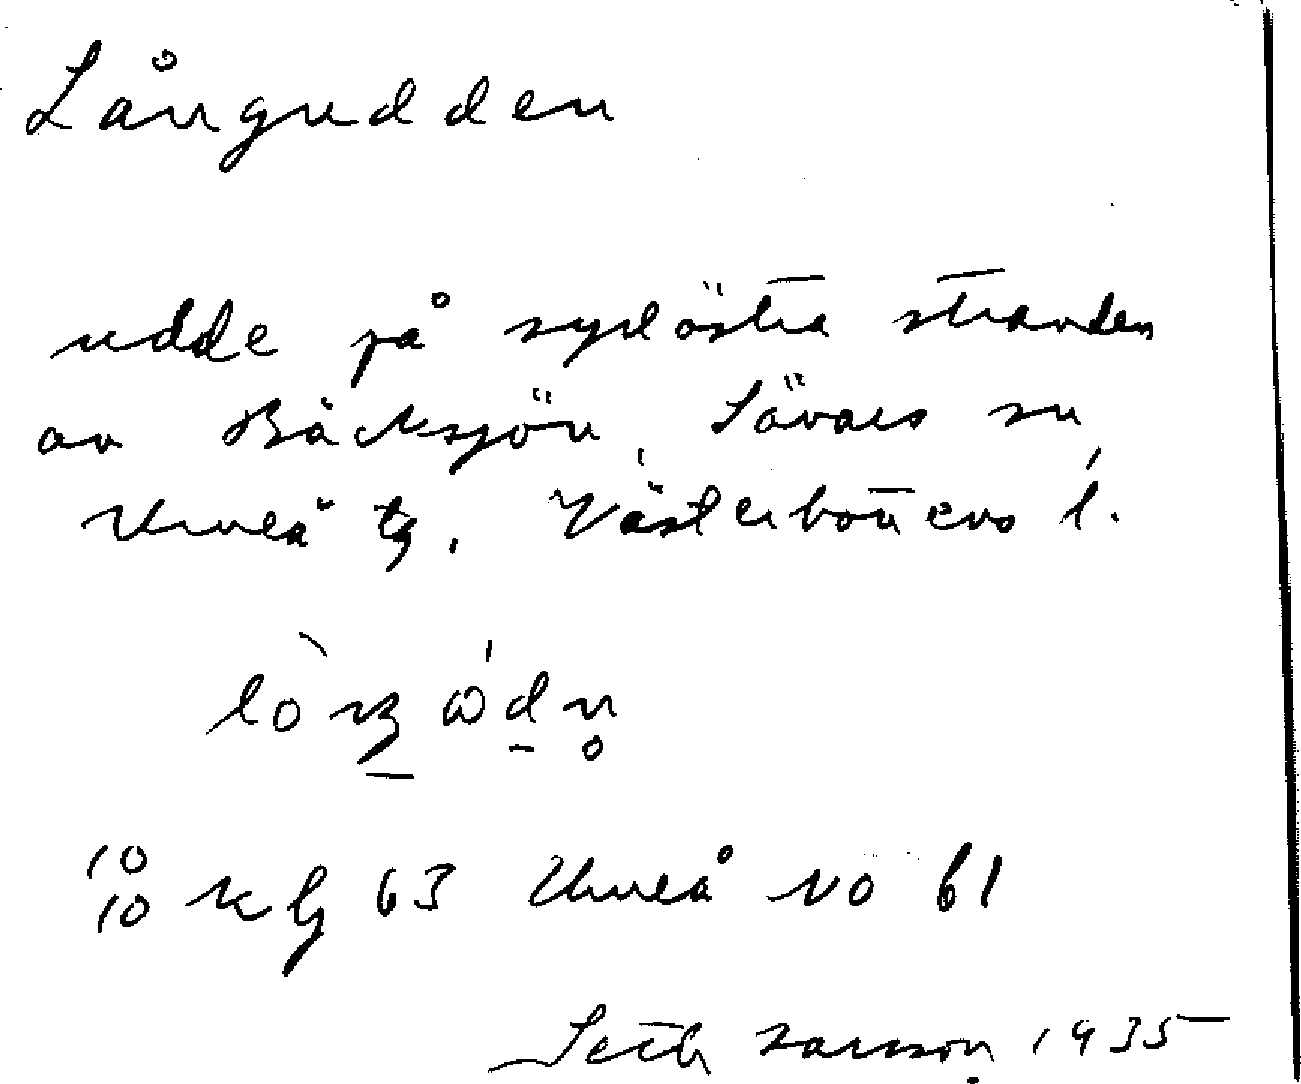 Långudden
udde på sydöstra stranden
av Bäcksjön, Sävars sn
Umeå tg. Västerbottens l.
10
10 kbl 63 Umeå nö 61
Seth Jansson 1935